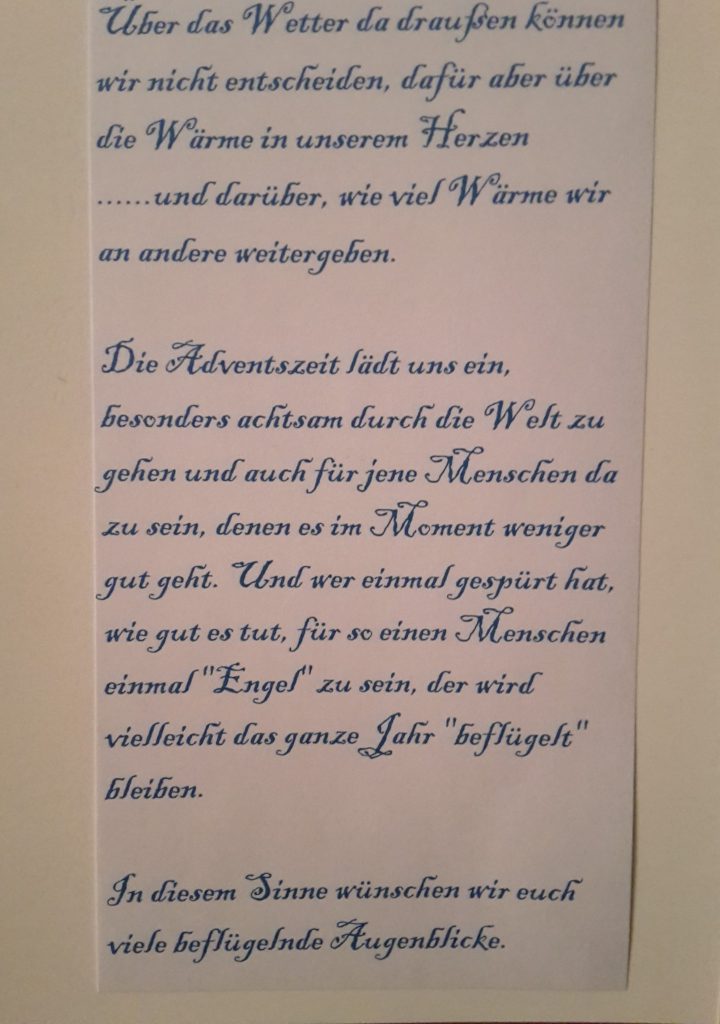 Über das Wetter da draußen können
wir nicht entscheiden, dafür aber über
die Wärme in unserem Herzen
......und darüber, wie viel Wärme wir
an andere weitergeben.
Die Adventszeit lädt uns ein,
besonders achtsam durch die Welt zu
gehen und auch für jene Menschen da
zu sein, denen es im Moment weniger
gut geht. Und wer einmal gespürt hat,
wie gut es tut, für so einen Menschen
einmal "Engel" zu sein, der wird
vielleicht das ganze Jahr "beflügelt"
bleiben.
In diesem Sinne wünschen wir euch
viele beflügelnde Augenblicke.